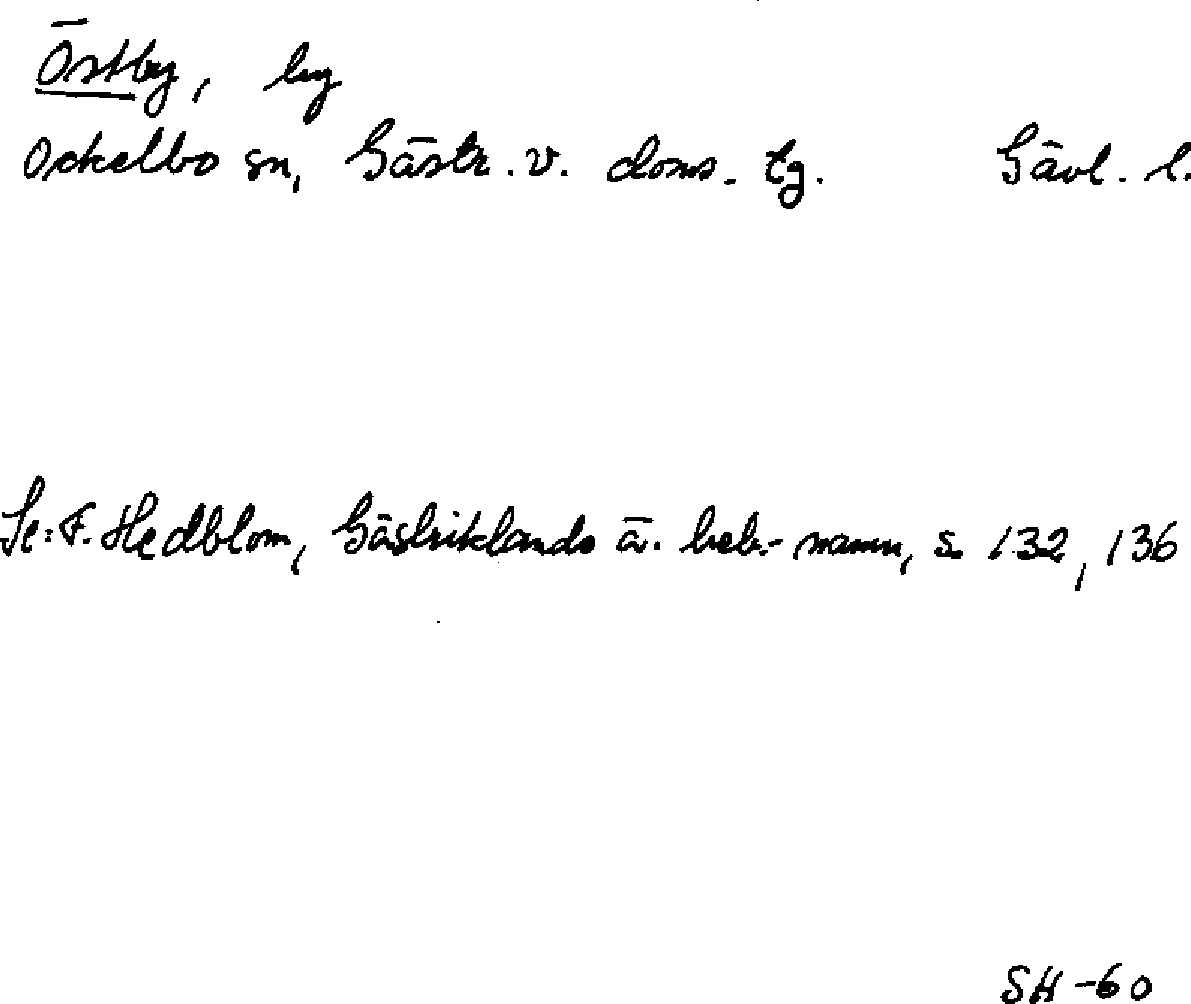 Östby, by
Ockelbo sn, Gästr. v. doms. tg. Gävl. l.
Se: F. Hedblom, Gästriklands ä. beb.-namn, s. 132, 136
SH-60